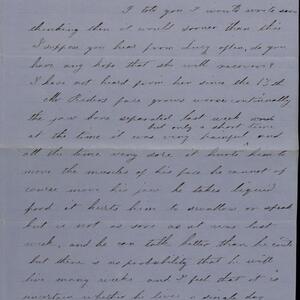 I told you I wrote
thinking then it would sooner than this
I suppose you hear from Lucy often, do you
have any hope that she will recover?
I have not heard from her since the 13th
Mr Riders face grows worse continually
the jaw bone separated last week
but only a short time
at the time it was very painful and
all the time very sore it hurts him to
move the muscles of his face he cannot of
course move his jaw he takes liquid
food it hurts him to swallow or speak
but is not as sore as it was last
week, and he can talk better than he could
but there is no probability that he will
live many weeks and I feel that it is
uncertain whether he lives a single day